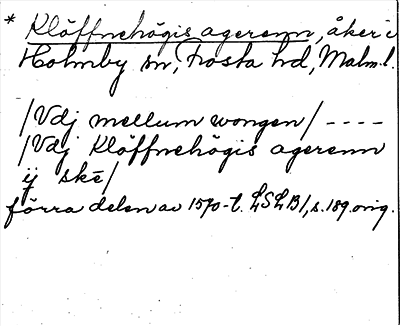 * Klöffnehögis agerenn, åker i
Holmby sn, Frosta hd, Malm. l.
/Vdj mellum wongen/ ----
/Vdj Klöffnehögis agerenn
ij skē/
förra delen av 1570-t. LSLB1, s. 189 orig.